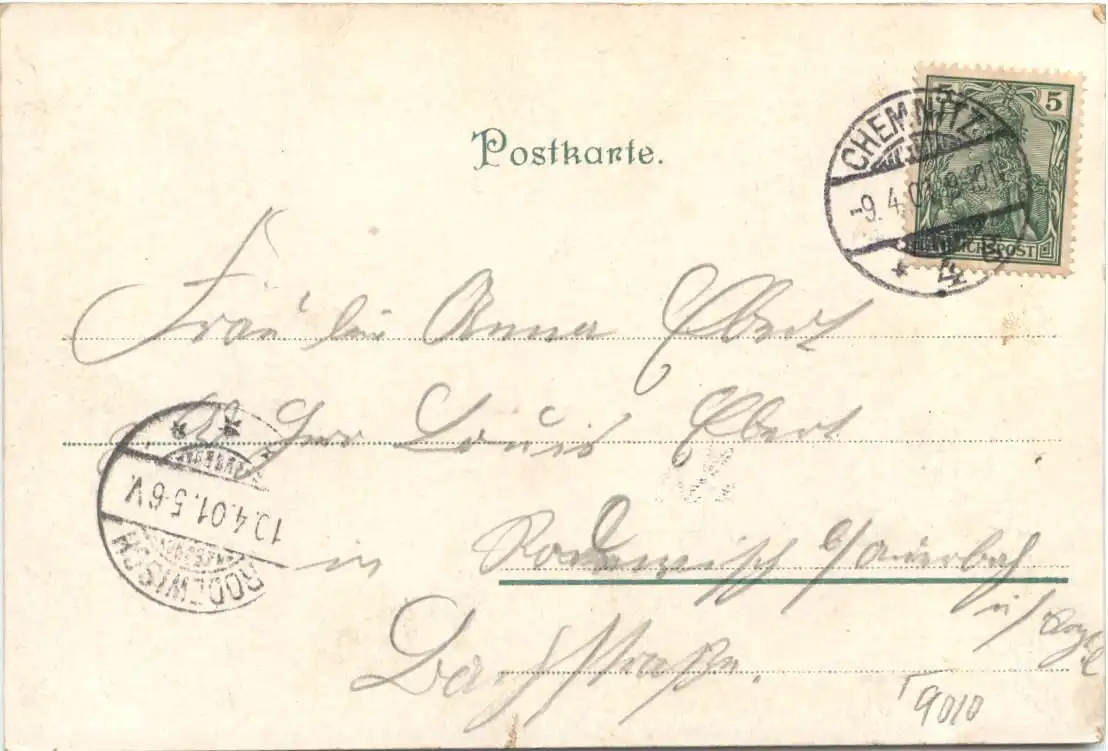 Postkarte.
CHEMNITZ
-9.4.01.8-9 N
* 4
5
REICHSPOST
Frau Anna Ebert
Herr Louis Ebert
in Rodewisch b/Auerbach
i/
Bachstraße.
RODEWISCH
10.4.01.5-6V.
* *
9010